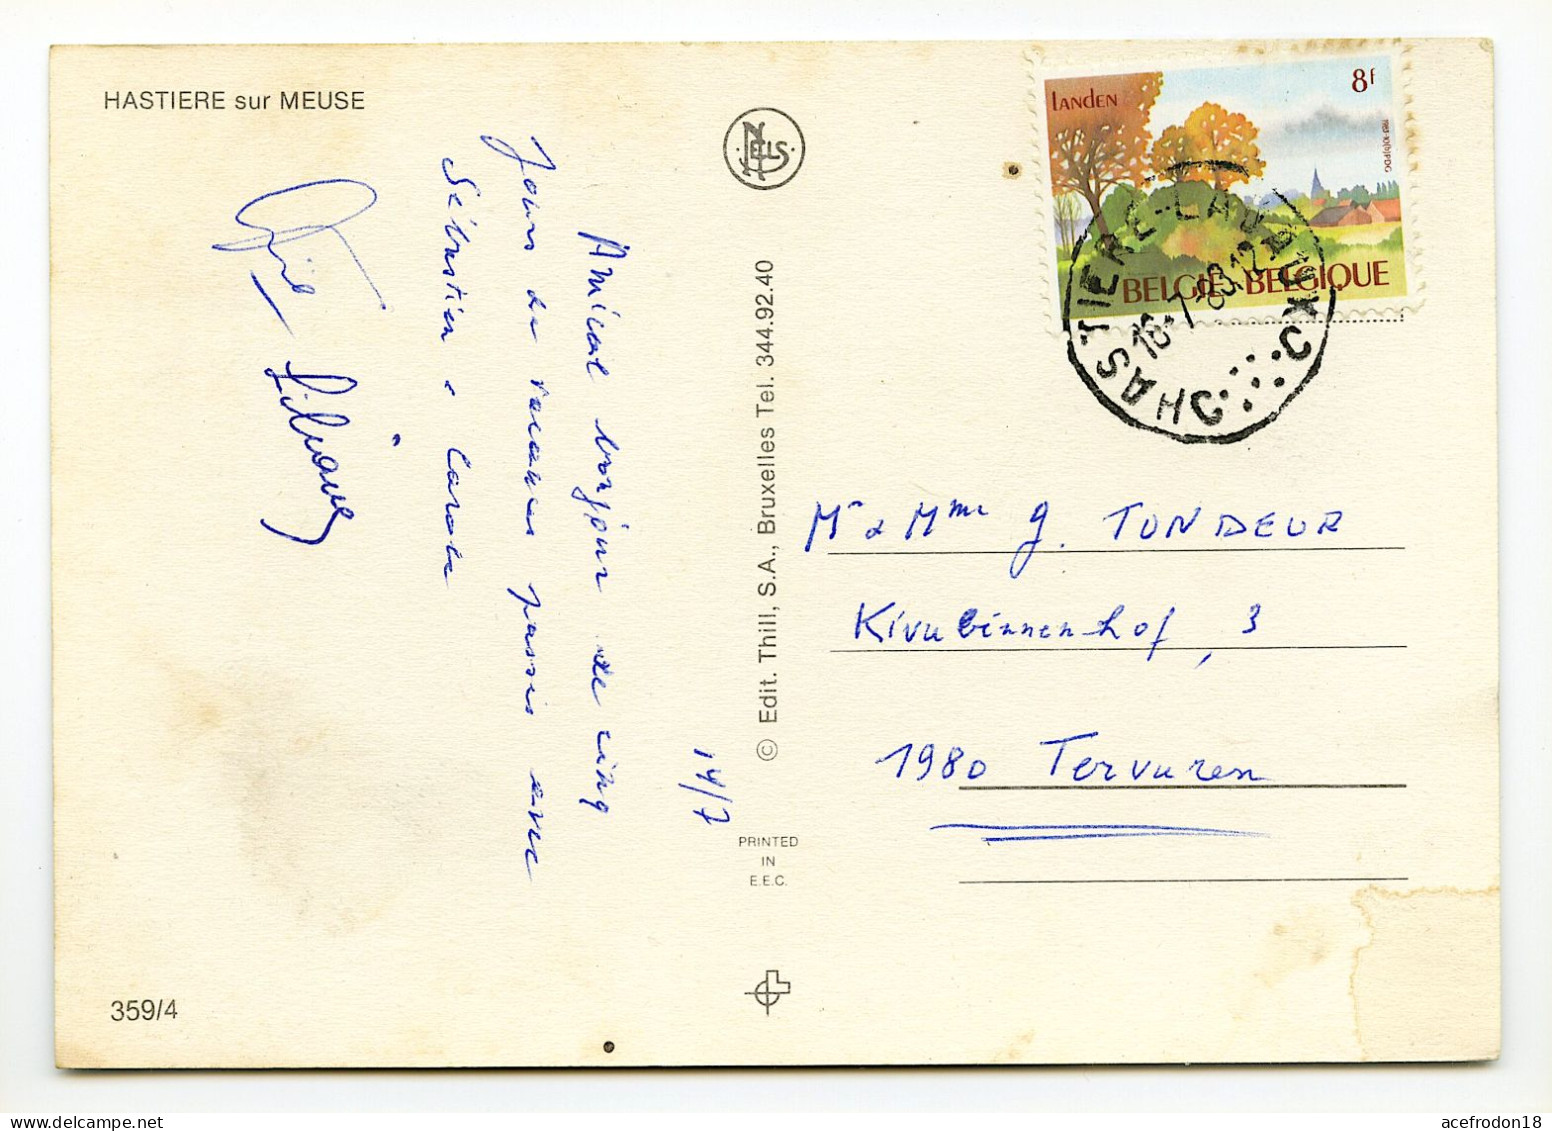 HASTIERE sur MEUSE
14/7
Amical bonjour de cinq
jours de vacances passés avec
Sébastien & Carole
Liliane
359/4
NELS
© Edit. Thill, S.A., Bruxelles Tel. 344.92.40
PRINTED
IN
E.E.C.
Landen
8f
BELGIË-BELGIQUE
HASTIERE-LAVAUX
Mr & Mme G. TONDEUR
Kivubinnenhof, 3
1980 Tervuren
acefrodon18